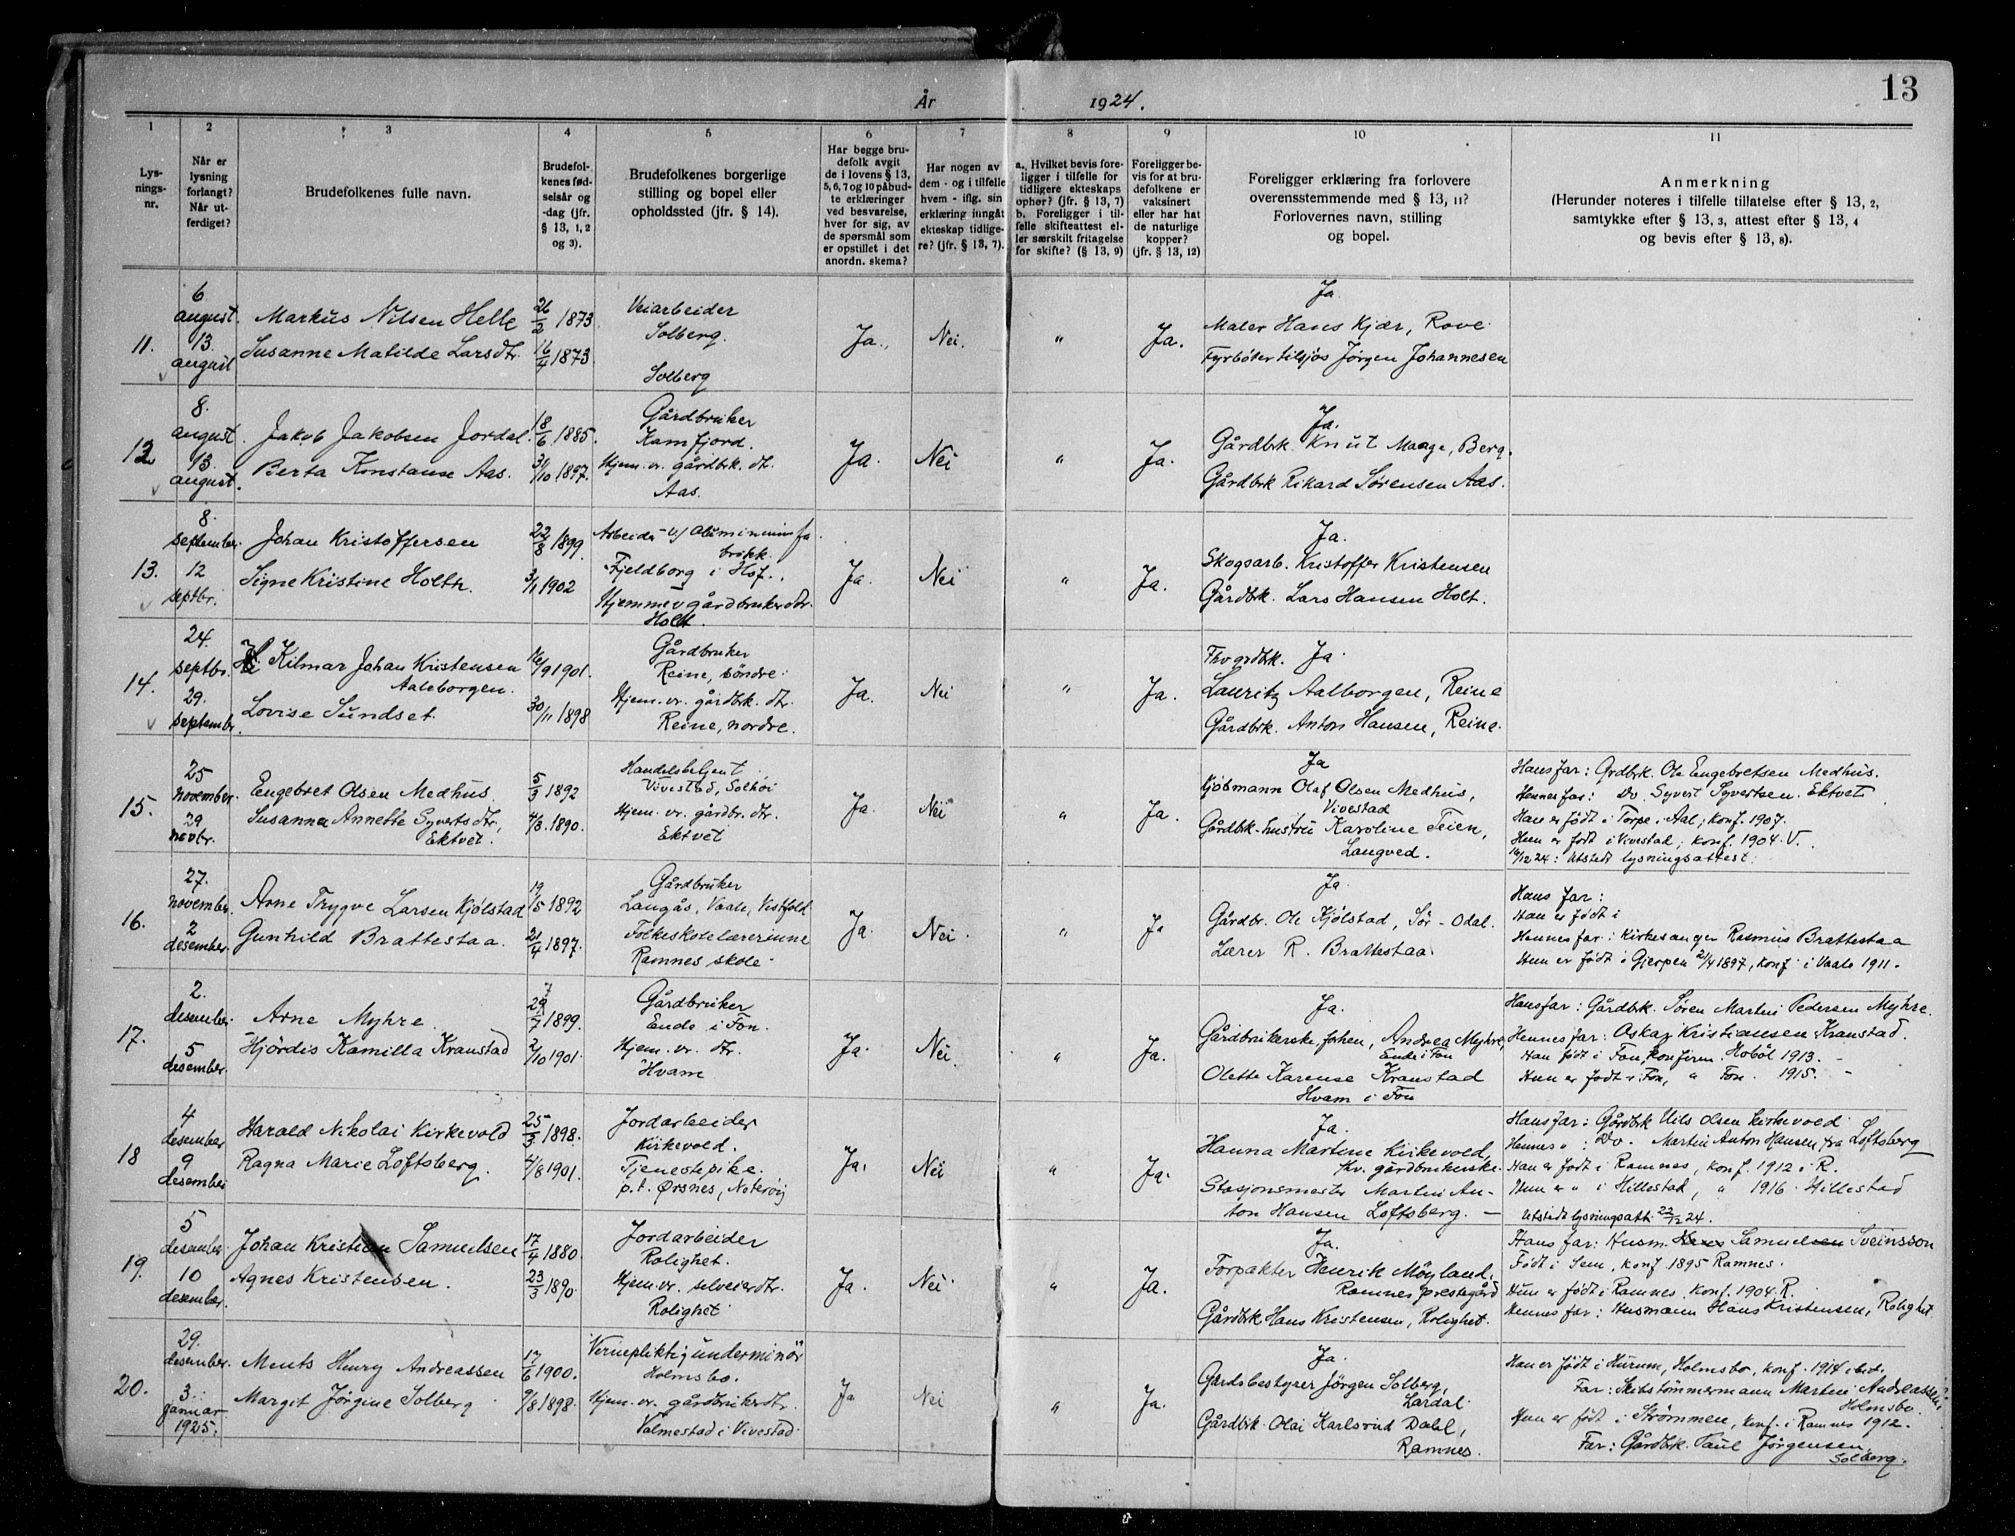 13
År 1924.
1 2 3 4 5 6 7 8 9 10 11
Lys-
nings-
nr.
Når er
lysning
forlangt?
Når ut-
ferdiget?
Brudefolkenes fulle navn.
Brudefol-
kenes fød-
selsår og
-dag (jfr.
§ 13, 1, 2
og 3).
Brudefolkenes borgerlige
stilling og bopel eller
opholdssted (jfr. § 14).
Har begge bru-
defolk avgit
de i lovens § 13,
5, 6, 7 og 10 påbud-
te erklæringer
ved besvarelse,
hver for sig, av
de spørsmål som
er opstillet i det
anordn. skema?
Har nogen av
dem - og i tilfelle
hvem - iflg. sin
erklæring inngåt
ekteskap tidlige-
re? (jfr. § 13, 7).
a. Hvilket bevis fore-
ligger i tilfelle for
tidligere ekteskaps
ophør? (jfr. § 13, 7)
b. Foreligger i til-
felle skifteattest el-
ler særskilt fritagelse
for skifte? (§ 13, 9)
Foreligger be-
vis for at bru-
defolkene er
vaksinert
eller har hat
de naturlige
kopper?
(jfr. § 13, 12)
Foreligger erklæring fra forlovere
overensstemmende med § 13, 11?
Forlovernes navn, stilling
og bopel.
Anmerkning
(Herunder noteres i tilfelle tillatelse efter § 13, 2,
samtykke efter § 13, 3, attest efter § 13, 4
og bevis efter § 13, 8).
11.
6
august.
13
august
Markus Nilsen Helle
Susanne Matilde Larsdtr.
26/2 1873
16/4 1873
Veiarbeider
Solberg.
Solberg
Ja.
Nei.
"
Ja.
Ja
Maler Hans Kjær, Rove
Fyrbøter tilsjøs Jørgen Johannesen
12
8.
august.
13.
august.
Jakob Jakobsen Jordal.
Berta Konstanse Aas.
18/6 1885.
31/10 1897.
Gårdbruker
Kamfjord.
Hjem. vr. gårdbk. dtr.
Aas.
Ja.
Nei
"
Ja.
Ja.
Gårdbk. Knut Maage, Berg.
Gårdbk Rikard Sørensen Aas.
13.
8.
september.
12
septbr.
Johan Kristoffersen
Signe Kristine Holth.
22/8 1899.
3/11 1902
Arbeider v/ Aluminiumfa
brikk.
Fjeldborg i Hof.
Hjemmev gårdbrukerdtr.
Holt.
Ja.
Nei
"
Ja.
Ja.
Skogsarb. Kristoffer Kristensen
Gårdbk. Lars Hansen Holt.
14.
24.
septbr.
29.
september.
Hi Kilmar Johan Kristensen
Aaleborgen.
Lovise Sundset.
16/9 1901.
30/11 1898
Gårdbruker
Reine, søndre.
Hjem. vr. gårdbk. dtr.
Reine, nordre.
Ja.
Nei
"
Ja.
Fhv grdbk. Ja
Lauritz Aalborgen, Reine
Gårdbk. Anton Hansen, Reine.
15.
25
november.
29
novbr.
Engebret Olsen Medhus.
Susanna Annette Syvertsdtr,
Ektvet.
5/3 1892
4/8 1890.
Handelsbetjent
Vivestad, Solhøi
Hjem. vr. gårdbr. dtr.
Ektvet
Ja.
Nei
"
Ja.
Ja
Kjøbmann Olaf Olsen Medhus,
Vivestad
Gårdbk-hustru Karoline Teien,
Langved.
Hans far: Grdbrk. Ole Engebretsen Medhus.
Hennes far: Do. Syvert Syvertsen. Ektvet
Han er født i Torpe i Aal; konf. 1907.
Hun er født i Vivestad; konf. 1904. V.
16/12 24: Utstedt lysningsattest.
16.
27.
november.
2
desember.
Arne Trygve Larsen Kjølstad
Gunhild Brattestaa.
19/5 1892
21/4 1897.
Gårdbruker
Langås, Vaale, Vestfold
Folkeskolelærerinne
Ramnes skole.
Ja.
Nei.
"
Ja
Ja.
Gårdbr. Ole Kjølstad, Sør-Odal.
Lærer R. Brattestaa.
Hans far:
Han er født i
Hennes far: Kirkesanger Rasmus Brattestaa
Hun er født i Gjerpen 21/4 1897, konf. i Vaale 1911.
17.
2.
desember.
5
desember.
Arne Myhre.
Hjördis Kamilla Kranstad
29/7 1899.
2/10 1901.
Gårdbruker
Ende i Fon.
Hjem. vr. dtr.
Hvam
Ja.
Nei.
"
Ja.
Ja.
Gårdbrukerske, Andrea Myhre,
Ende i Fon
Olette Karense Kranstad
Hvam i Fon
Hans far: Gårdbk. Søren Martin Pedersen Myhre.
Hennes far: Oskar Kristiansen Kranstad.
Han født i Fon, konfirm. Hobøl 1913. -
Hun er født i Fon, " Fon. 1915. -
18
4
desember
9
desember
Harald Nikolai Kirkevold
Ragna Marie Loftsberg.
25/3 1898.
4/8 1901.
Jordarbeider
Kirkevold.
Tjenestepike.
p.t. Ørsnes, Nøterøy
Ja.
Nei
"
Ja.
Ja.
Hanna Martine Kirkevold,
hv. gårdbrukerske.
Stasjonsmester Martin An-
ton Hansen Loftsberg. -
Hans far: Gårdbk Nils Olsen Kirkevold
Hennes ": Do. Martin Anton Hansen fra Loftsberg
Han er født i Ramnes, konf. 1912 i R.
Hun er " i Hillestad, " 1916 - Hillestad
Utstedt lysningsatt. 22/12 24.
19.
5
desember
10
desember.
Johan Kristian Samuelsen
Agnes Kristensen.
17/4 1880.
23/3 1890.
Jordarbeider
Rolighet.
Hjem. vr. selveierdtr.
Rolighet.
Ja.
Nei
"
Ja.
Ja.
Forpakter Henrik Möyland,
Ramnes prestegård
Gårdbk Hans Kristensen, Rolighet.
Hans far: Husm. Samuelsen Sveinsson
Født i Sem, konf 1895 Ramnes.
Hun er født i Ramnes, konf. 1904. R.
Hennes far: Husmann Hans Kristensen, Rolighet.
20.
29.
desember.
3.
januar
1925.
Ments Henry Andreassen
Margit Jörgine Solberg.
17/6 1900.
9/8 1898.
Vernepliktig underminör
Holmsbo.
Hjem. vr. gårdbrukerdtr.
Valmestad i Vivestad.
Ja
Nei
"
Ja.
Ja.
Gårdsbestyrer Jörgen Solberg,
Lardal.
Gårdbk. Olai Karlsrud Dahl,
Ramnes.
Han er født i Hurum, Holmsbo, konf. 1914 ibid.
Far: Skibstømmermann Martin Andreassen,
Holmsbo.
Hun er født i Strømmen, konf. i Ramnes 1912.
Far: Gårdbk. Paul Jørgensen
Solberg.